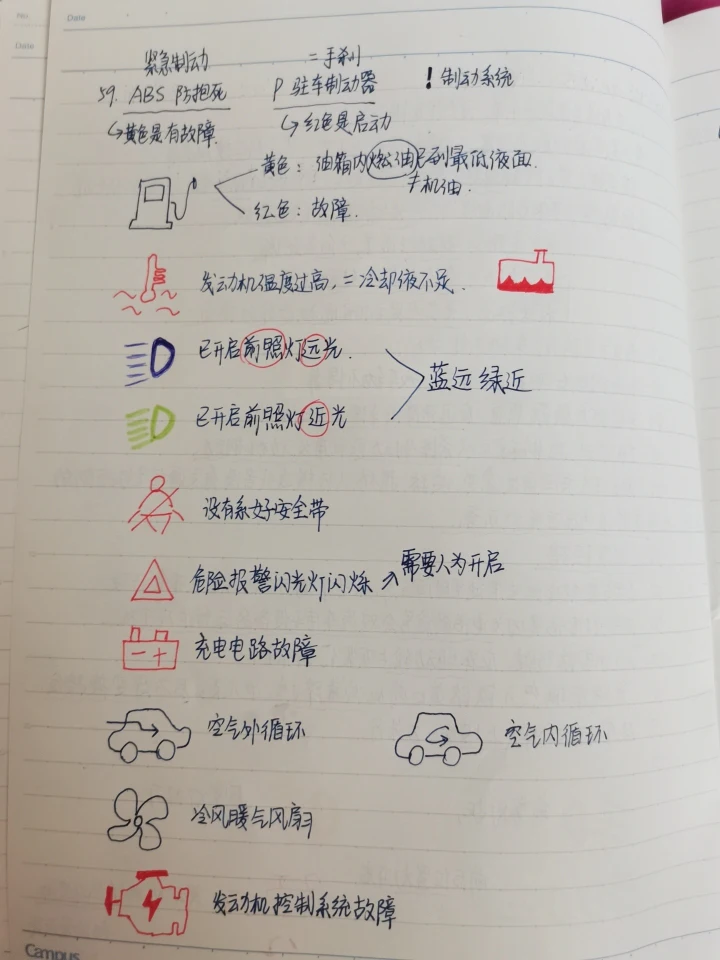 No.
Date
Date
紧急制动
=手刹
59. ABS 防抱死
P 驻车制动器
! 制动系统
↳黄色是有故障.
↳红色是启动
黄色：油箱内燃油已到最低液面.
≠机油.
红色：故障.
发动机温度过高. = 冷却液不足.
已开启前照灯远光.
蓝远绿近
已开启前照灯近光
没有系好安全带
危险报警闪光灯闪烁 → 需要人为开启
- +
充电电路故障
空气外循环
空气内循环
冷风暖气风扇
发动机控制系统故障
Campus